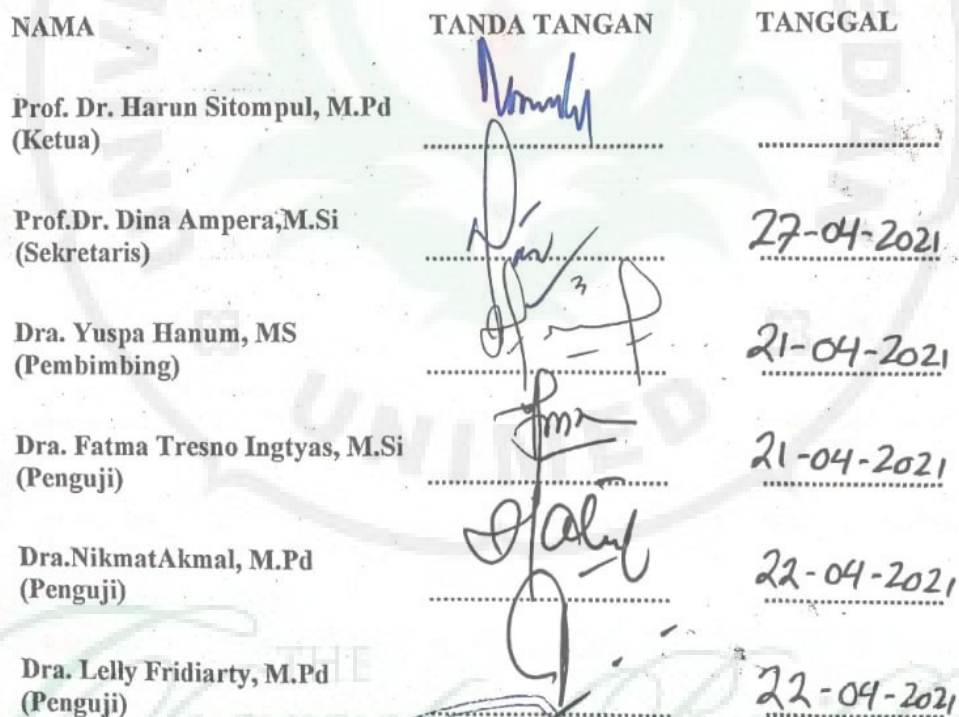 NAMA TANDA TANGAN TANGGAL
Prof. Dr. Harun Sitompul, M.Pd
(Ketua)
Prof.Dr. Dina Ampera,M.Si
(Sekretaris) 27-04-2021
Dra. Yuspa Hanum, MS
(Pembimbing) 21-04-2021
Dra. Fatma Tresno Ingtyas, M.Si
(Penguji) 21-04-2021
Dra.NikmatAkmal, M.Pd
(Penguji) 22-04-2021
Dra. Lelly Fridiarty, M.Pd
(Penguji) 22-04-2021
UNIMED
THE